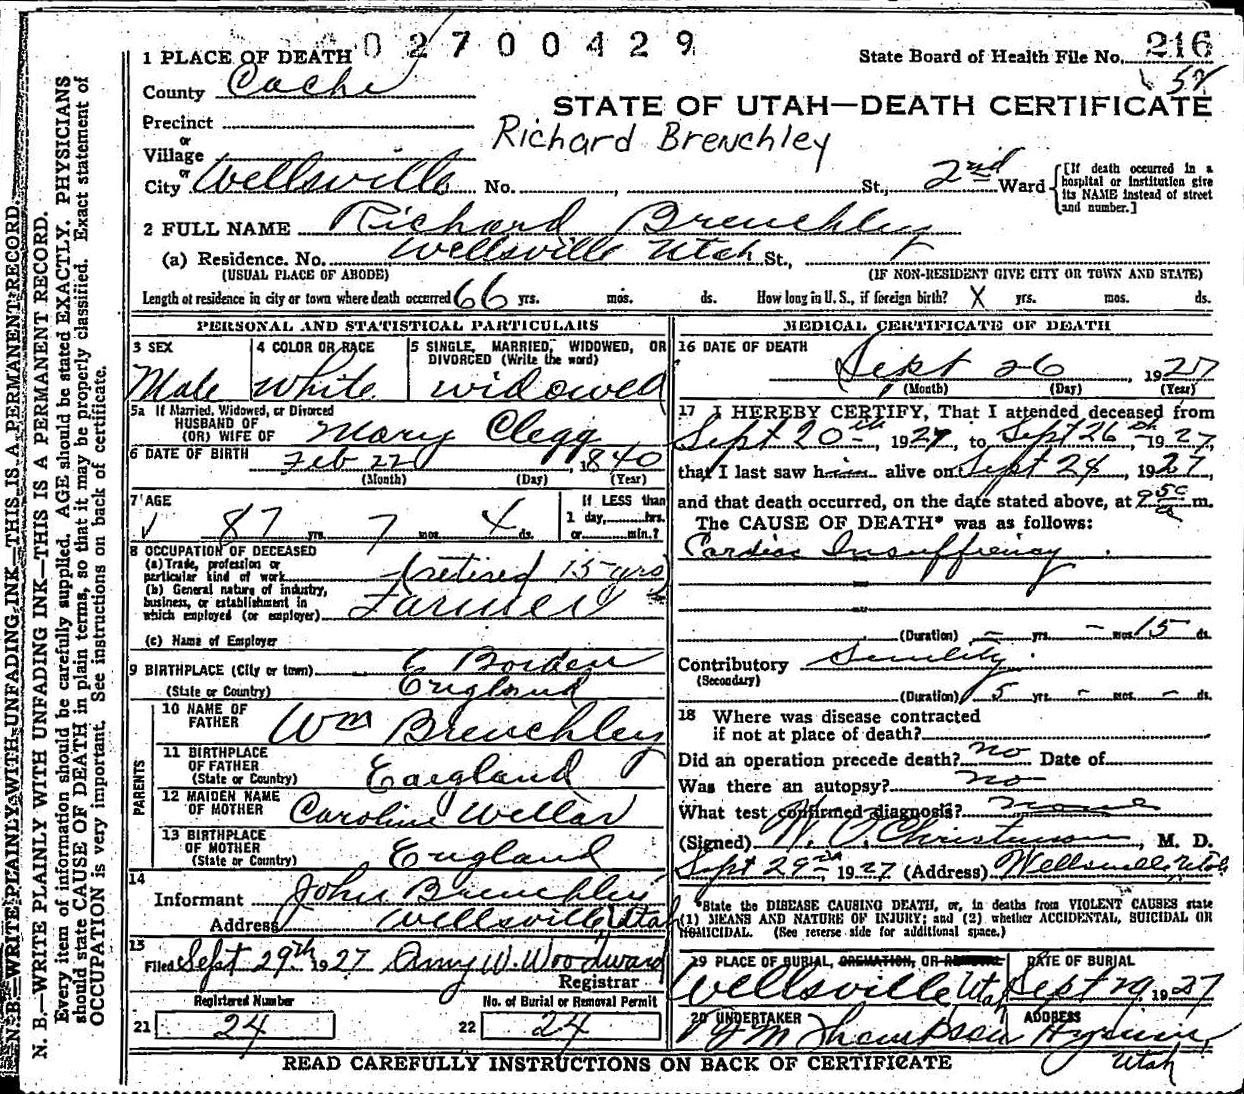 02700429
1 PLACE OF DEATH
State Board of Health File No. 216
County Cache
STATE OF UTAH—DEATH CERTIFICATE
Precinct
Richard Brenchley
or
Village
or
City Wellsville No. , St., 2nd Ward
[If death occurred in a
hospital or institution give
its NAME instead of street
and number.]
2 FULL NAME Richard Brenchley
(a) Residence. No. Wellsville Utah St.,
(USUAL PLACE OF ABODE) (IF NON-RESIDENT GIVE CITY OR TOWN AND STATE)
Length of residence in city or town where death occurred 66 yrs. mos. ds. How long in U. S., if foreign birth? X yrs. mos. ds.
PERSONAL AND STATISTICAL PARTICULARS
3 SEX 4 COLOR OR RACE 5 SINGLE, MARRIED, WIDOWED, OR
DIVORCED (Write the word)
Male White widowed
5a If Married, Widowed, or Divorced
HUSBAND OF
(OR) WIFE OF Mary Clegg
6 DATE OF BIRTH Feb 22, 1840
(Month) (Day) (Year)
7 AGE If LESS than
1 day, hrs.
87 yrs. 7 mos. 4 ds. or min.?
8 OCCUPATION OF DECEASED
(a) Trade, profession or
particular kind of work (retired 15 yrs
(b) General nature of industry,
business, or establishment in
which employed (or employer) Farmer
(c) Name of Employer
9 BIRTHPLACE (City or town)
(State or Country) England
PARENTS
10 NAME OF
FATHER Wm Brenchley
11 BIRTHPLACE
OF FATHER
(State or Country) England
12 MAIDEN NAME
OF MOTHER Caroline Weller
13 BIRTHPLACE
OF MOTHER
(State or Country) England
14
Informant John Brenchley
Address Wellsville, Utah
15
Filed Sept 29th 1927 Amy W. Woodward
Registrar
Registered Number No. of Burial or Removal Permit
21 24 22 24
MEDICAL CERTIFICATE OF DEATH
16 DATE OF DEATH
Sept 26, 1927
(Month) (Day) (Year)
17 I HEREBY CERTIFY, That I attended deceased from
Sept 20th, 1927, to Sept 26th, 1927,
that I last saw him alive on Sept 24, 1927
and that death occurred, on the date stated above, at 9 50 a m.
The CAUSE OF DEATH* was as follows:
Cardiac Insuffiency
(Duration) – yrs. – mos. 15 ds.
Contributory Senility.
(Secondary)
(Duration) 5 yrs. - mos. - ds.
18 Where was disease contracted
if not at place of death?
Did an operation precede death? no Date of
Was there an autopsy? no
What test confirmed diagnosis? none
(Signed) Christenson, M. D.
Sept 29 1927 (Address) Wellsville, Utah
*State the DISEASE CAUSING DEATH, or, in deaths from VIOLENT CAUSES state
(1) MEANS AND NATURE OF INJURY; and (2) whether ACCIDENTAL, SUICIDAL OR
HOMICIDAL. (See reverse side for additional space.)
19 PLACE OF BURIAL, CREMATION, OR REMOVAL DATE OF BURIAL
Wellsville Utah Sept 29 1927
20 UNDERTAKER ADDRESS
Thompson Hyrum,
Utah
READ CAREFULLY INSTRUCTIONS ON BACK OF CERTIFICATE
N. B.—WRITE PLAINLY WITH UNFADING INK—THIS IS A PERMANENT RECORD.
N. B.—WRITE PLAINLY WITH UNFADING INK—THIS IS A PERMANENT RECORD.
Every item of information should be carefully supplied. AGE should be stated EXACTLY. PHYSICIANS
should state CAUSE OF DEATH in plain terms, so that it may be properly classified. Exact statement of
OCCUPATION is very important. See instructions on back of certificate.